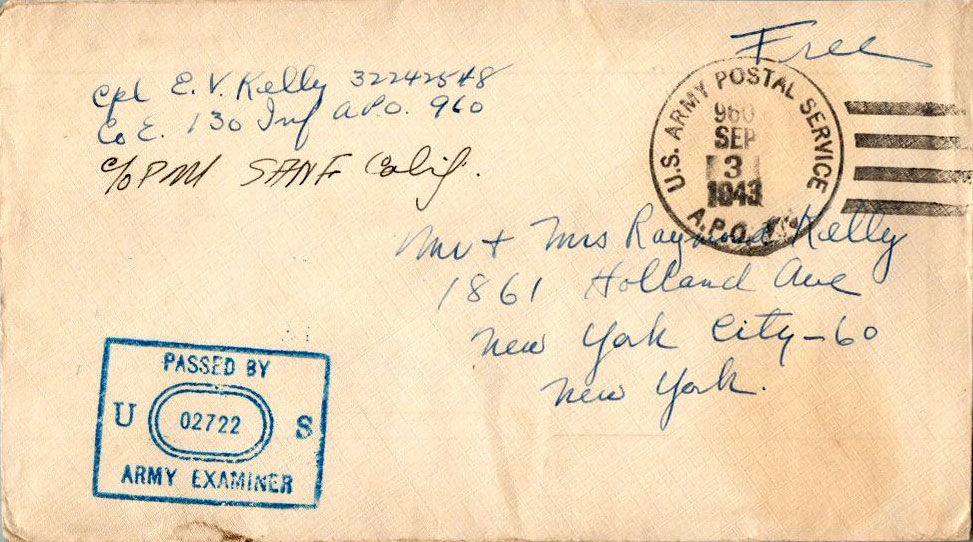 Free
Cpl E. V. Kelly 32242548
Co E. 130 Inf A.P.O. 960
c/o PM SANF Calif.
U.S. ARMY POSTAL SERVICE
960
SEP
3
1943
A.P.O.
Mr + Mrs Raymond Kelly
1861 Holland Ave
New York City-60
New York.
PASSED BY
U 02722 S
ARMY EXAMINER